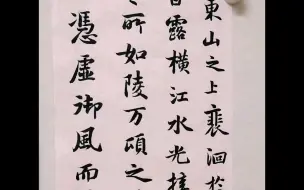 東山之上裴洄於
露横江水光接
所如陵万頃之
憑虚御風而